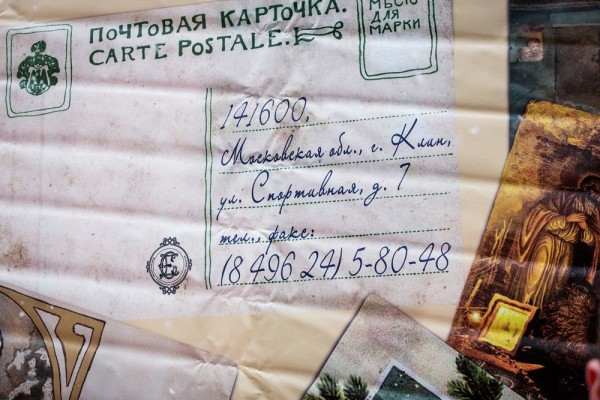 ПОЧТОВАЯ КАРТОЧКА.
CARTE POSTALE.
МѢСТО
ДЛЯ
МАРКИ
141600,
Московская обл., г. Клин,
ул. Спортивная, д. 7
тел., факс:
(8 496 24) 5-80-48